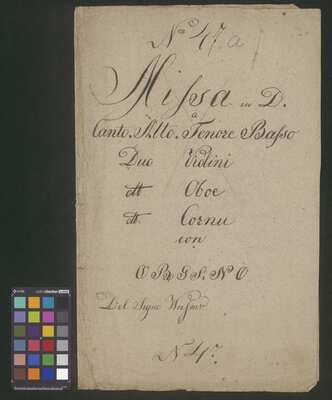 No 47. a
Missa in D.
a
Canto. Alto. Tenore Basso
Duo Violini
dtt Oboe
dtt. Cornu
con
O R G A N O
Del Sigre
N 47.